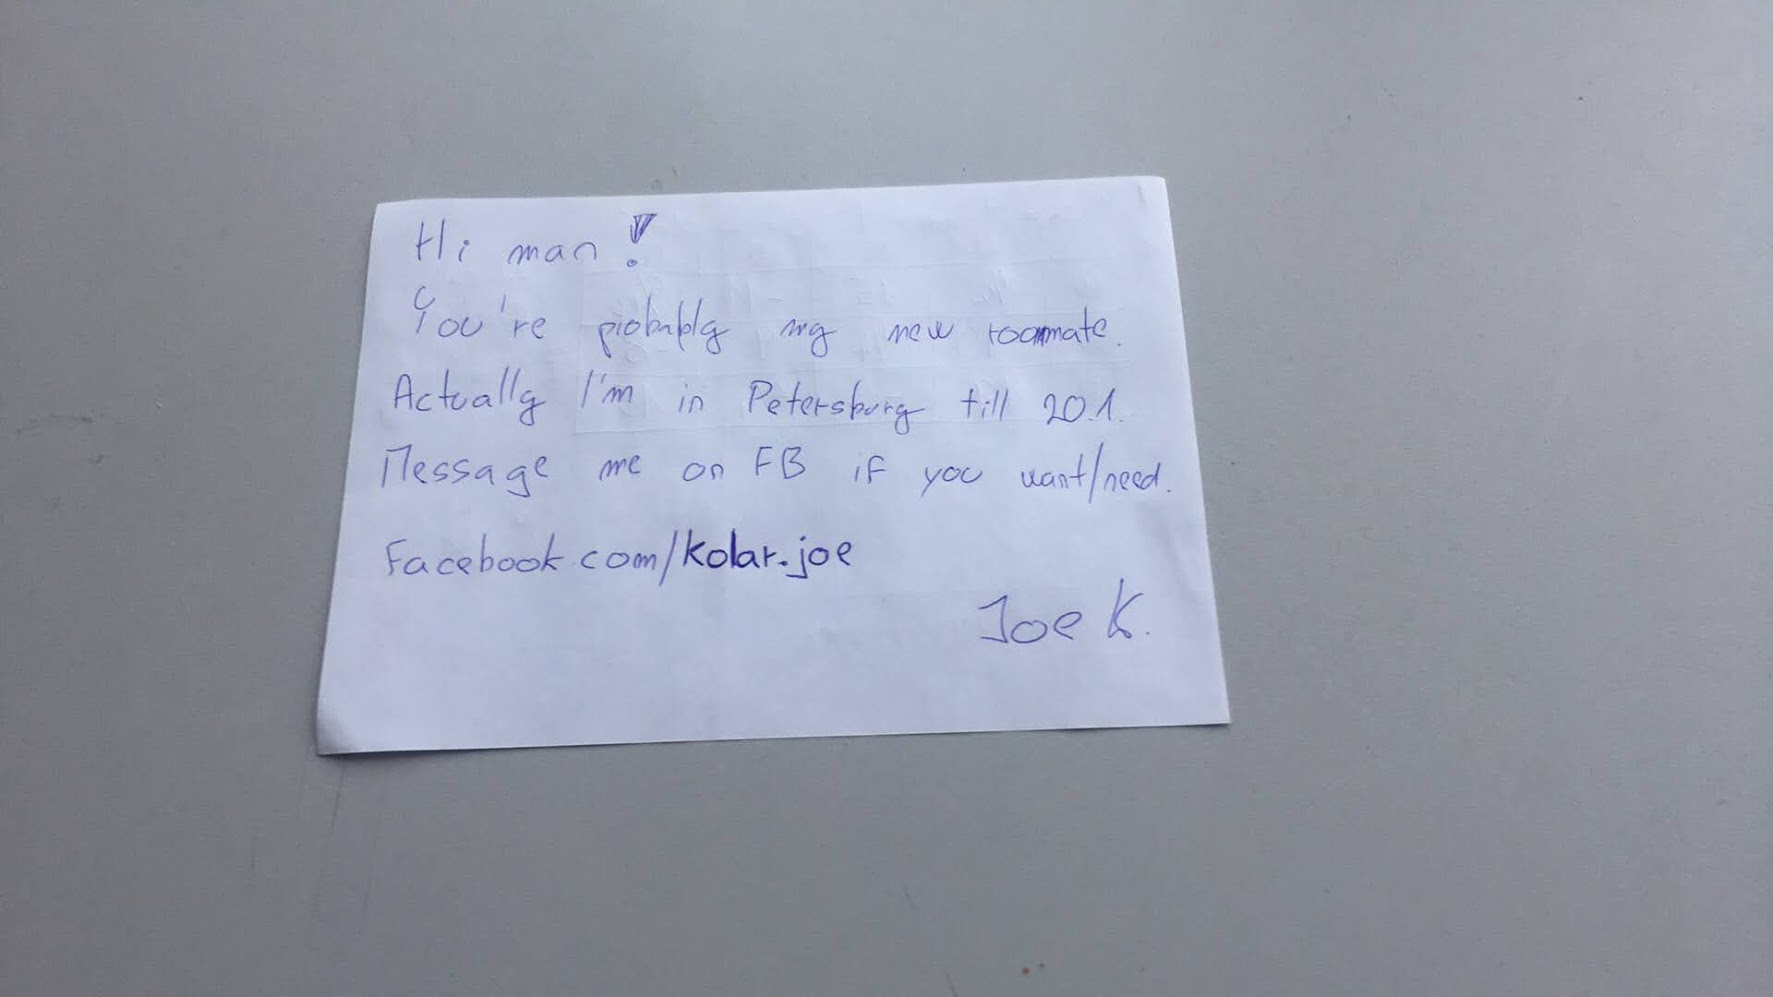 Hi man!
You're probably my new roommate.
Actually I'm in Petersburg till 20.1.
Message me on FB if you want/need.
Facebook.com/kolar.joe
Joe K.